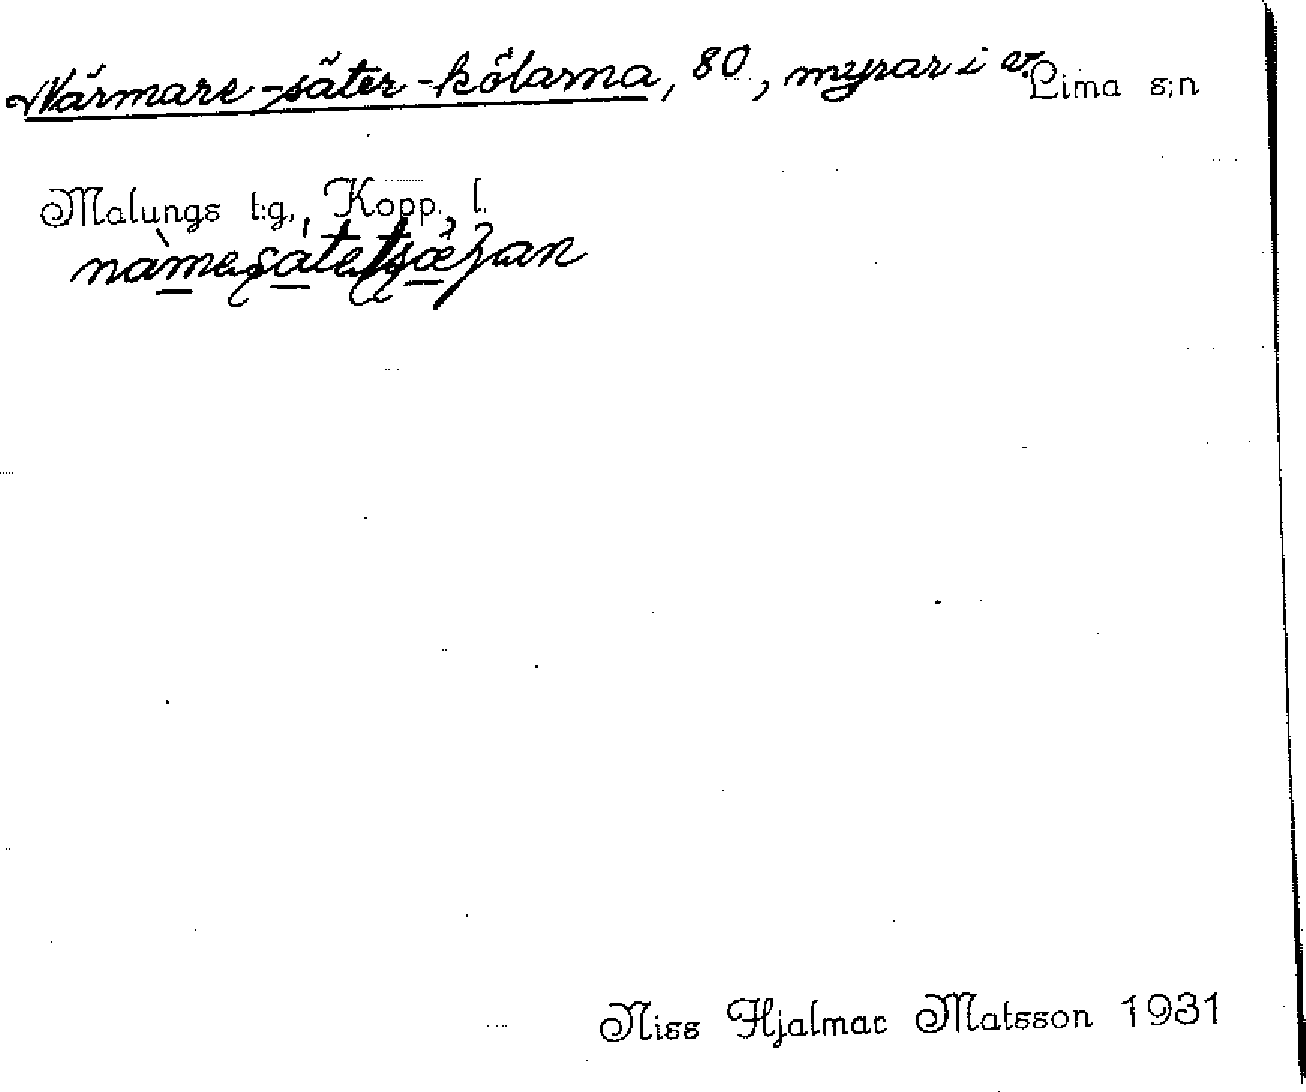 Närmare-säter-kölarna, 80., myrar i v. Lima s:n
Malungs t:g., Kopp. l.
Niss Hjalmar Matsson 1931